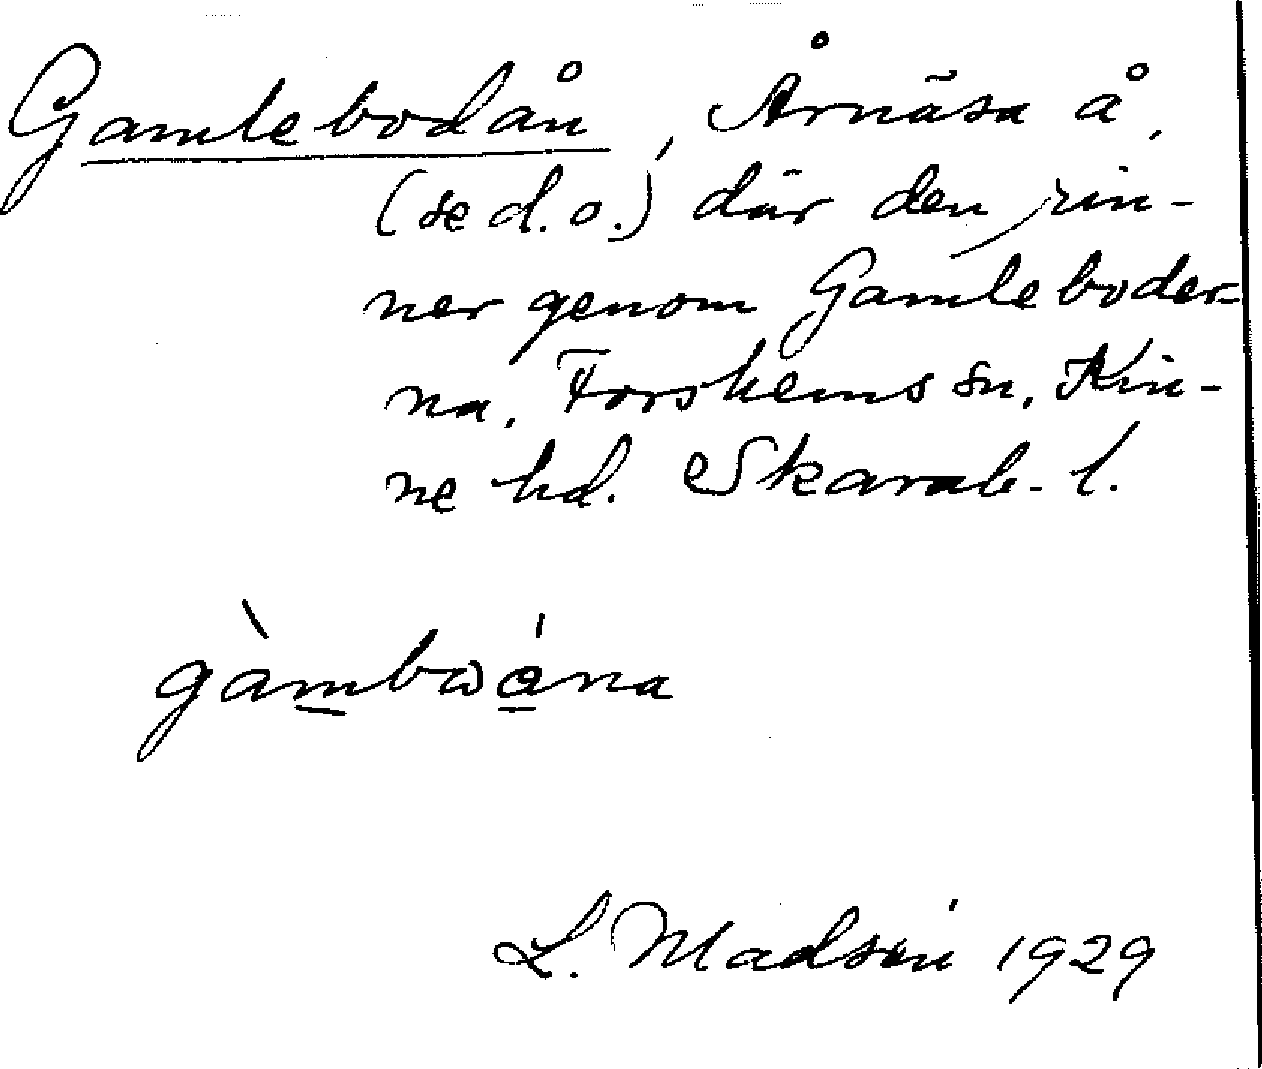 Gamlebodån, Årnäsa å,
(se d.o.) där den rin-
ner genom Gamleboder-
na, Forshems sn, Kin-
ne hd. Skarab. l.
gàmbωána
L. Madsén 1929